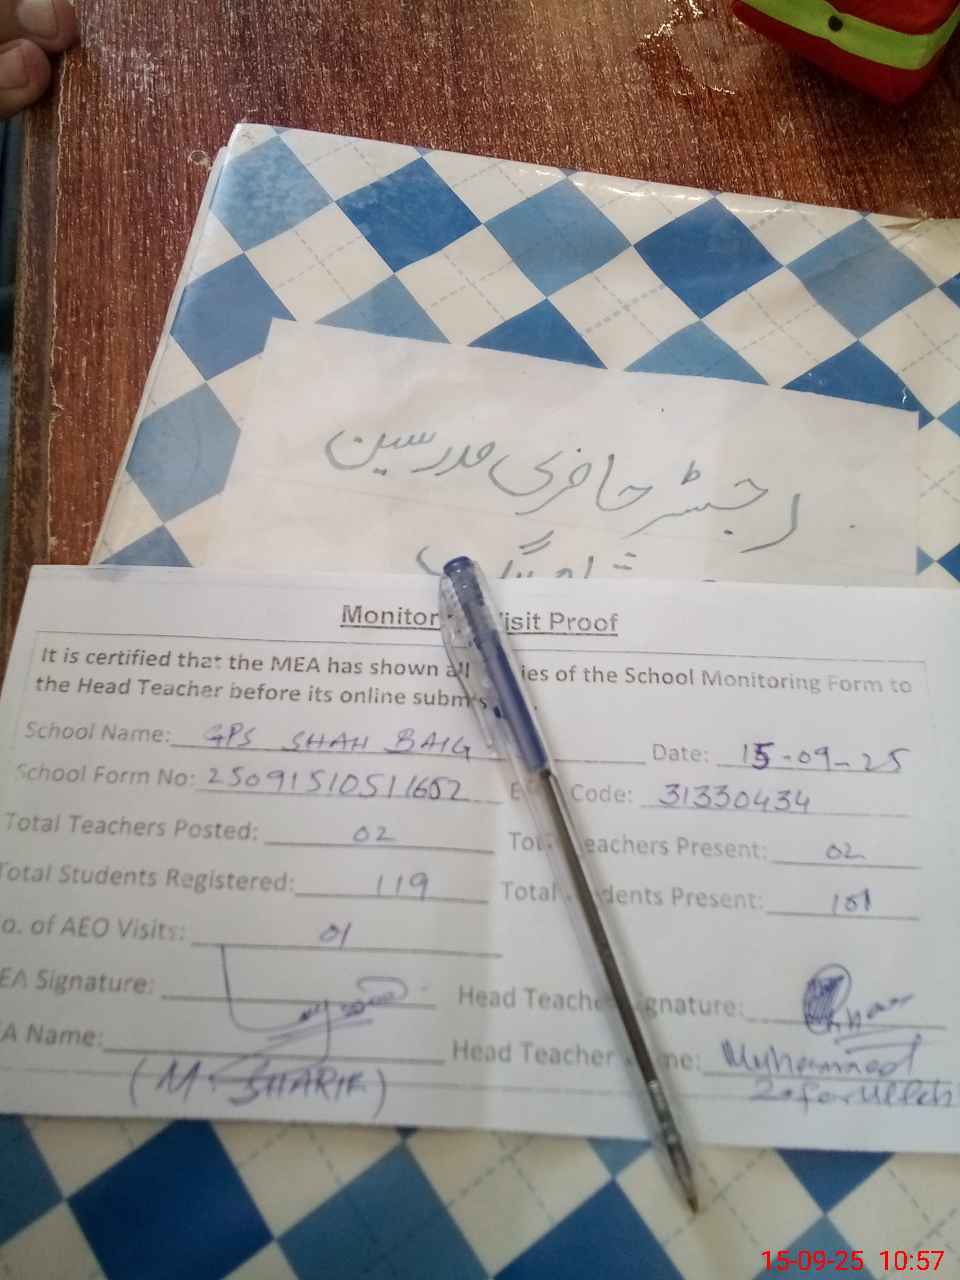 رجسٹر حاضری مدرسین
Monitor isit Proof
It is certified that the MEA has shown all ies of the School Monitoring Form to
the Head Teacher before its online submis
School Name: GPS SHAH BAIG Date: 15-09-25
School Form No: 25091510511652 E Code: 31330434
Total Teachers Posted: 02 Tot eachers Present: 02
Total Students Registered: 119 Total dents Present: 101
o. of AEO Visits: 01
EA Signature: Head Teache gnature:
A Name: Head Teacher me: Muhammad
(M. SHARIF) Zafarullah
15-09-25 10:57